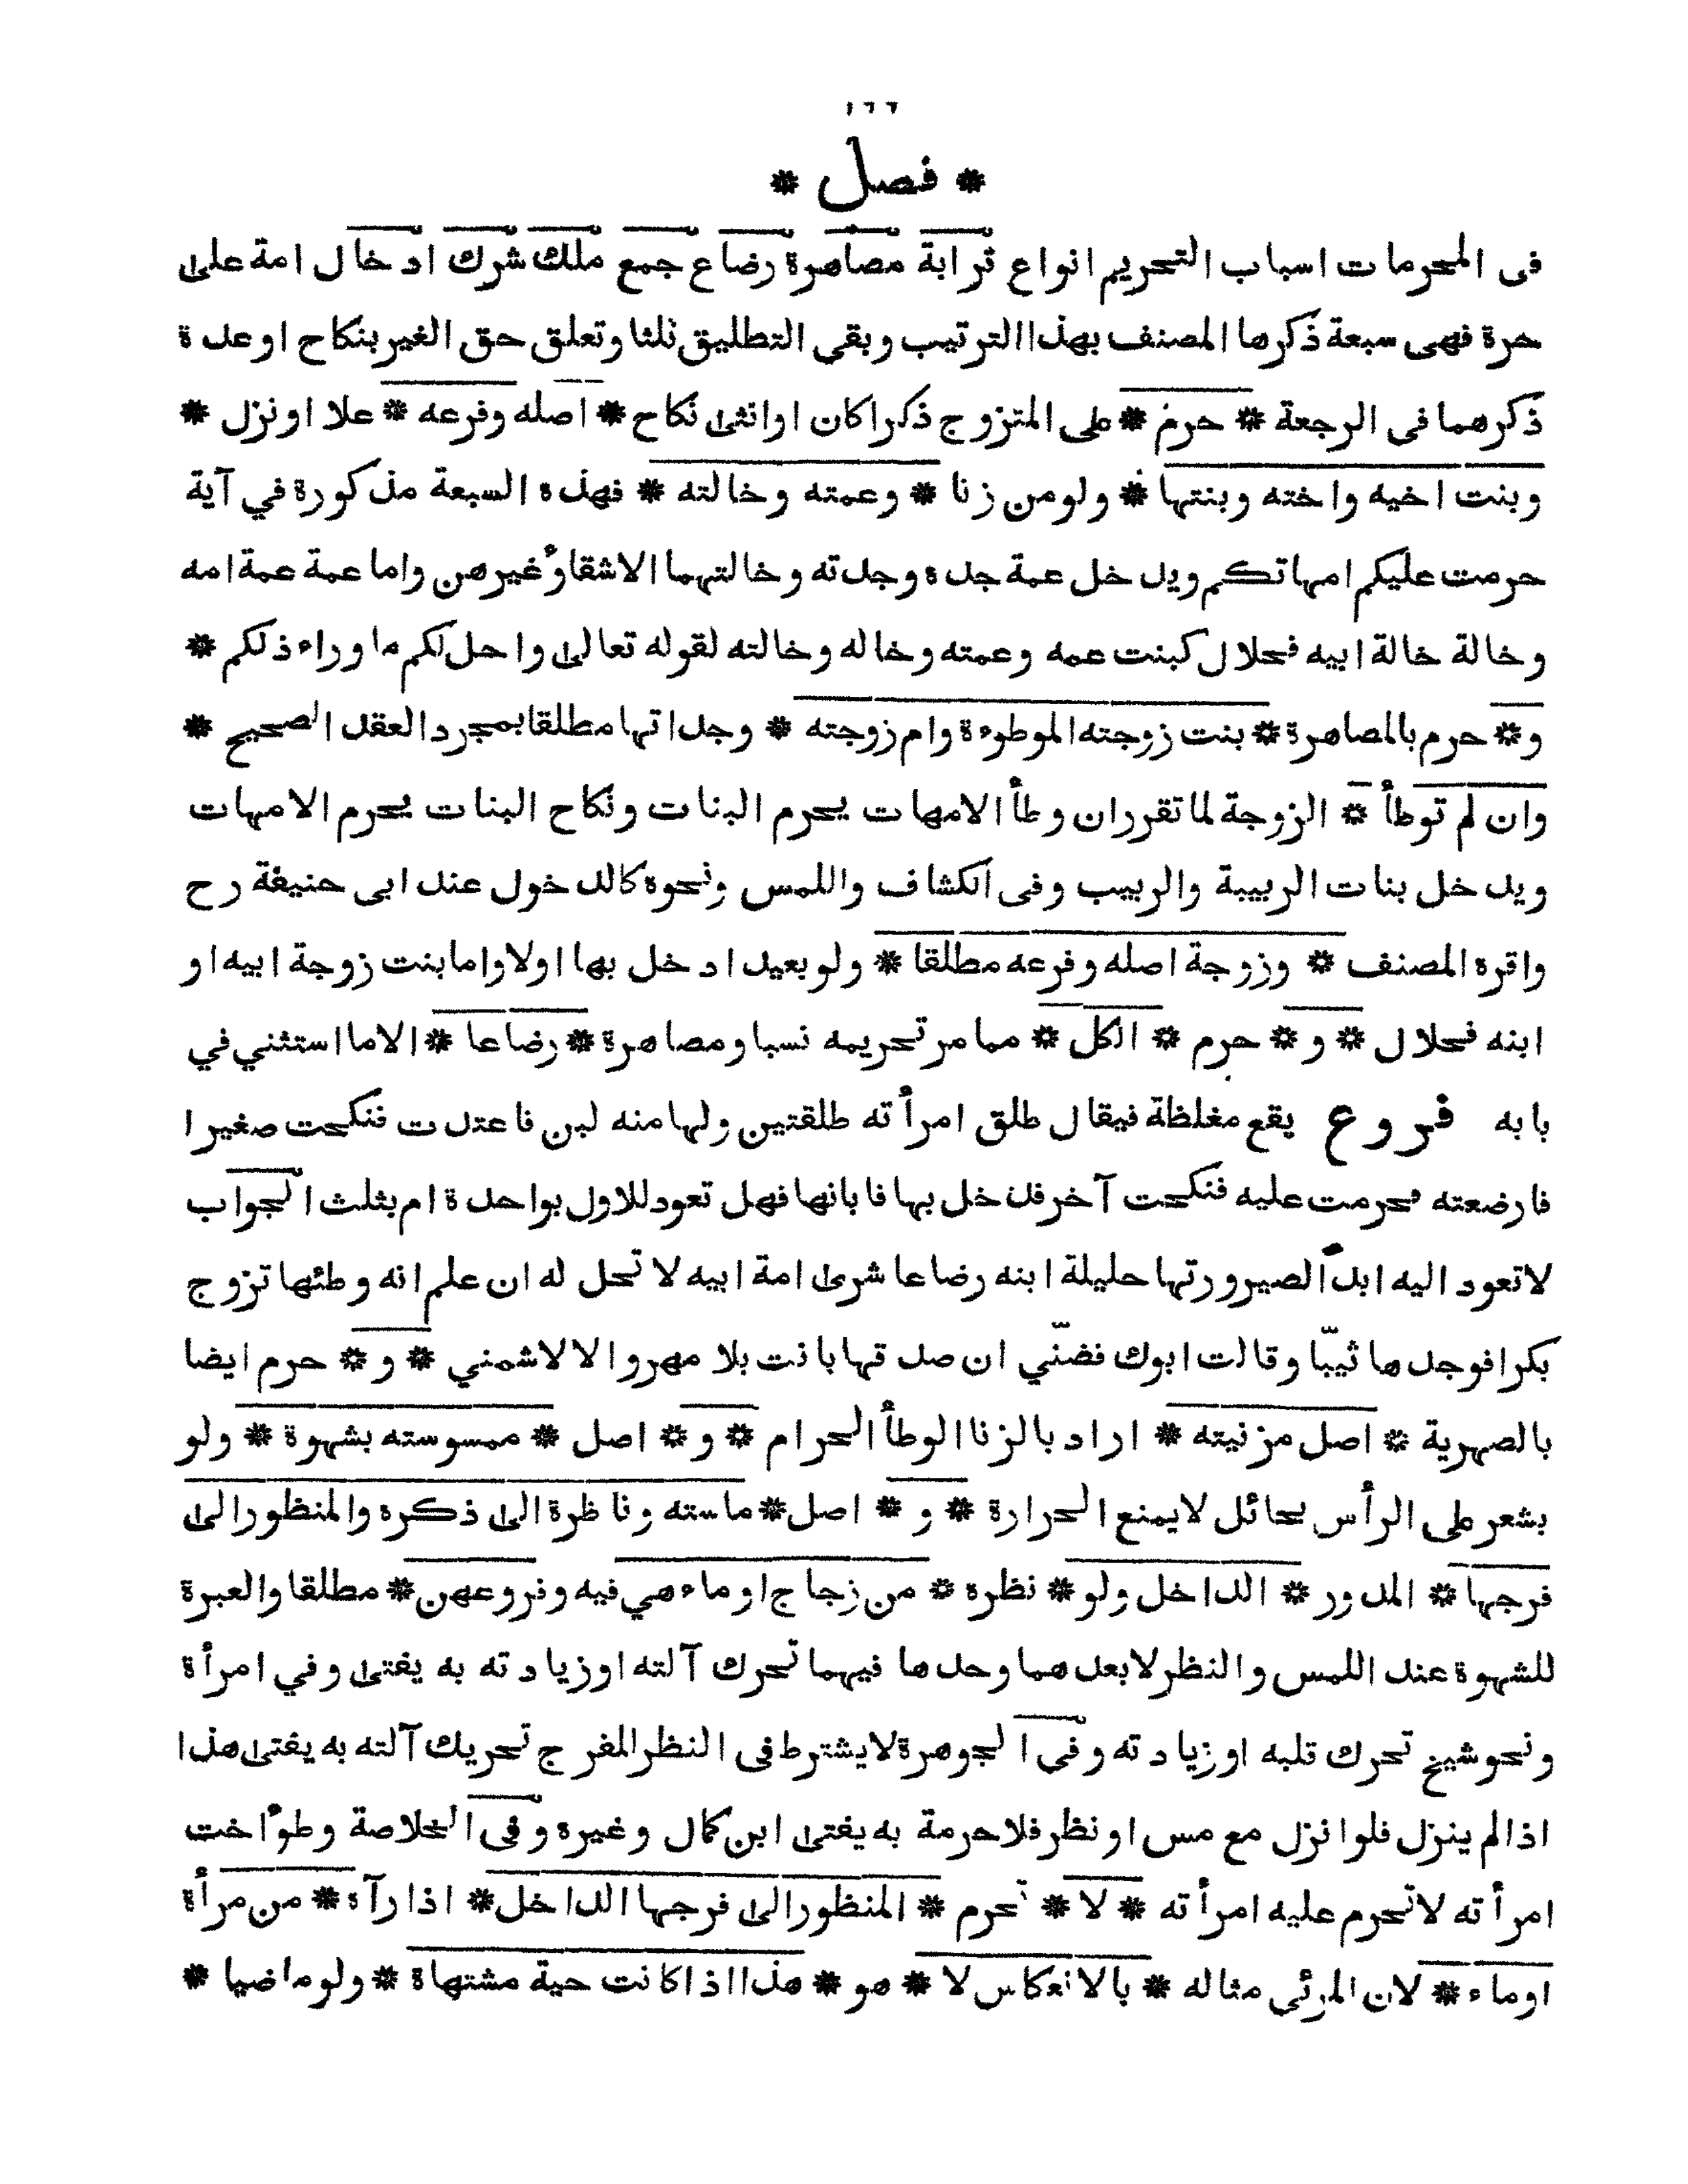 ١٦٦
* فصل *
فى المحرمات اسباب التحريم انواع قرابة مصاهرة رضاع جمع ملك شرك ادخال امة على
حرة فهى سبعة ذكرها المصنف بهذا الترتيب وبقى التطليق ثلثا وتعلق حق الغير بنكاح او عدة
ذكرهما فى الرجعة * حرم * على المتزوج ذكرا كان او انثى نكاح * اصله وفرعه * علا او نزل *
وبنت اخيه واخته وبنتها * ولو من زنا * وعمته وخالته * فهذه السبعة مذكورة في آية
حرمت عليكم امهاتكم ويدخل عمة جده وجدته وخالتهما الاشقاؤغيرهن واما عمة عمة امه
وخالة خالة ابيه فحلال كبنت عمه وعمته وخاله وخالته لقوله تعالى واحل لكم ما وراء ذلكم *
و* حرم بالمصاهرة * بنت زوجته الموطوءة وام زوجته * وجداتها مطلقا بمجرد العقد الصحيح *
وان لم توطأ * الزوجة لما تقرر ان وطأ الامهات يحرم البنات ونكاح البنات يحرم الامهات
ويدخل بنات الربيبة والربيب وفى الكشاف واللمس ونحوه كالدخول عند ابى حنيفة رح
واقره المصنف * وزوجة اصله وفرعه مطلقا * ولو بعيدا دخل بها اولا واما بنت زوجة ابيه او
ابنه فحلال * و * حرم * الكل * مما مر تحريمه نسبا ومصاهرة * رضاعا * الا ما استثني في
بابه فروع يقع مغلظة فيقال طلق امرأته طلقتين ولها منه لبن فاعتدت فنكحت صغيرا
فارضعته فحرمت عليه فنكحت آخر فدخل بها فابانها فهل تعود للاول بواحدة ام بثلث الجواب
لا تعود اليه ابدا لصيرورتها حليلة ابنه رضاعا شرى امة ابيه لا تحل له ان علم انه وطئها تزوج
بكرا فوجدها ثيبّا وقالت ابوك فضنّي ان صدقها بانت بلا مهر والا لا شمني * و * حرم ايضا
بالصهرية * اصل مزنيته * اراد بالزنا الوطأ الحرام * و * اصل * ممسوسته بشهوة * ولو
بشعر على الرأس بحائل لا يمنع الحرارة * و * اصل * ماسته وناظرة الى ذكره والمنظور الى
فرجها * المدور * الداخل ولو * نظره * من زجاج او ماء هي فيه وفروعهن * مطلقا والعبرة
للشهوة عند اللمس والنظر لا بعدهما وحدها فيهما تحرك آلته او زيادته به يفتى وفي امرأة
ونحو شيخ تحرك قلبه او زيادته وفى الجوهرة لا يشترط فى النظر المفرج تحريك آلته به يفتى هذا
اذا لم ينزل فلو انزل مع مس او نظر فلا حرمة به يفتى ابن كمال وغيره وفى الخلاصة وطؤاخت
امرأته لا تحرم عليه امرأته * لا * تحرم * المنظور الى فرجها الداخل * اذا رآه * من مرأة
او ماء * لان المرئي مثاله * بالانعكاس لا * هو * هذا اذا كانت حية مشتهاة * ولو ماضيا *